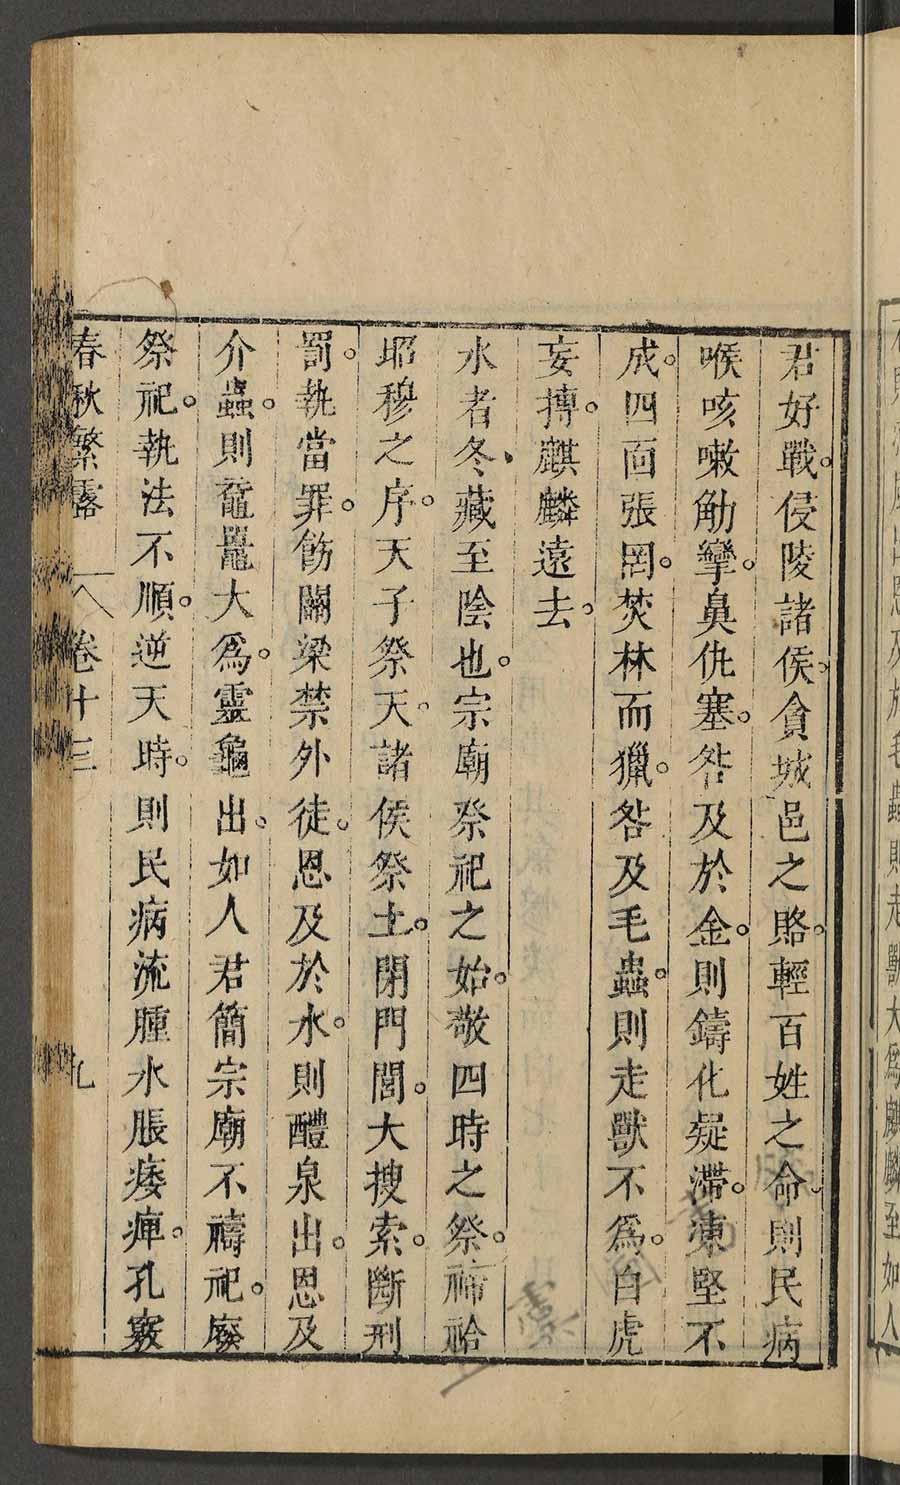 君好戰。侵陵諸侯。貪城邑之賂。輕百姓之命。則民病
喉咳嗽觔攣。鼻仇塞。咎及於金。則鑄化疑滯。凍堅不
成。四面張罔。焚林而獵。咎及毛蟲。則走獸不為。白虎
妄摶。麒麟遠去。
水者冬、藏至陰也。宗廟祭祀之始。敬四時之祭。禘祫
昭穆之序。天子祭天。諸侯祭土。閉門閭。大搜索。斷刑
罰。執當罪。飭關梁禁外徒。恩及於水。則醴泉出。恩及
介蟲。則黿鼉大為。靈龜出。如人君簡宗廟不禱祀。廢
祭祀。執法不順。逆天時。則民病流腫水脹痿痺。孔竅
春秋繁露 卷十三 九